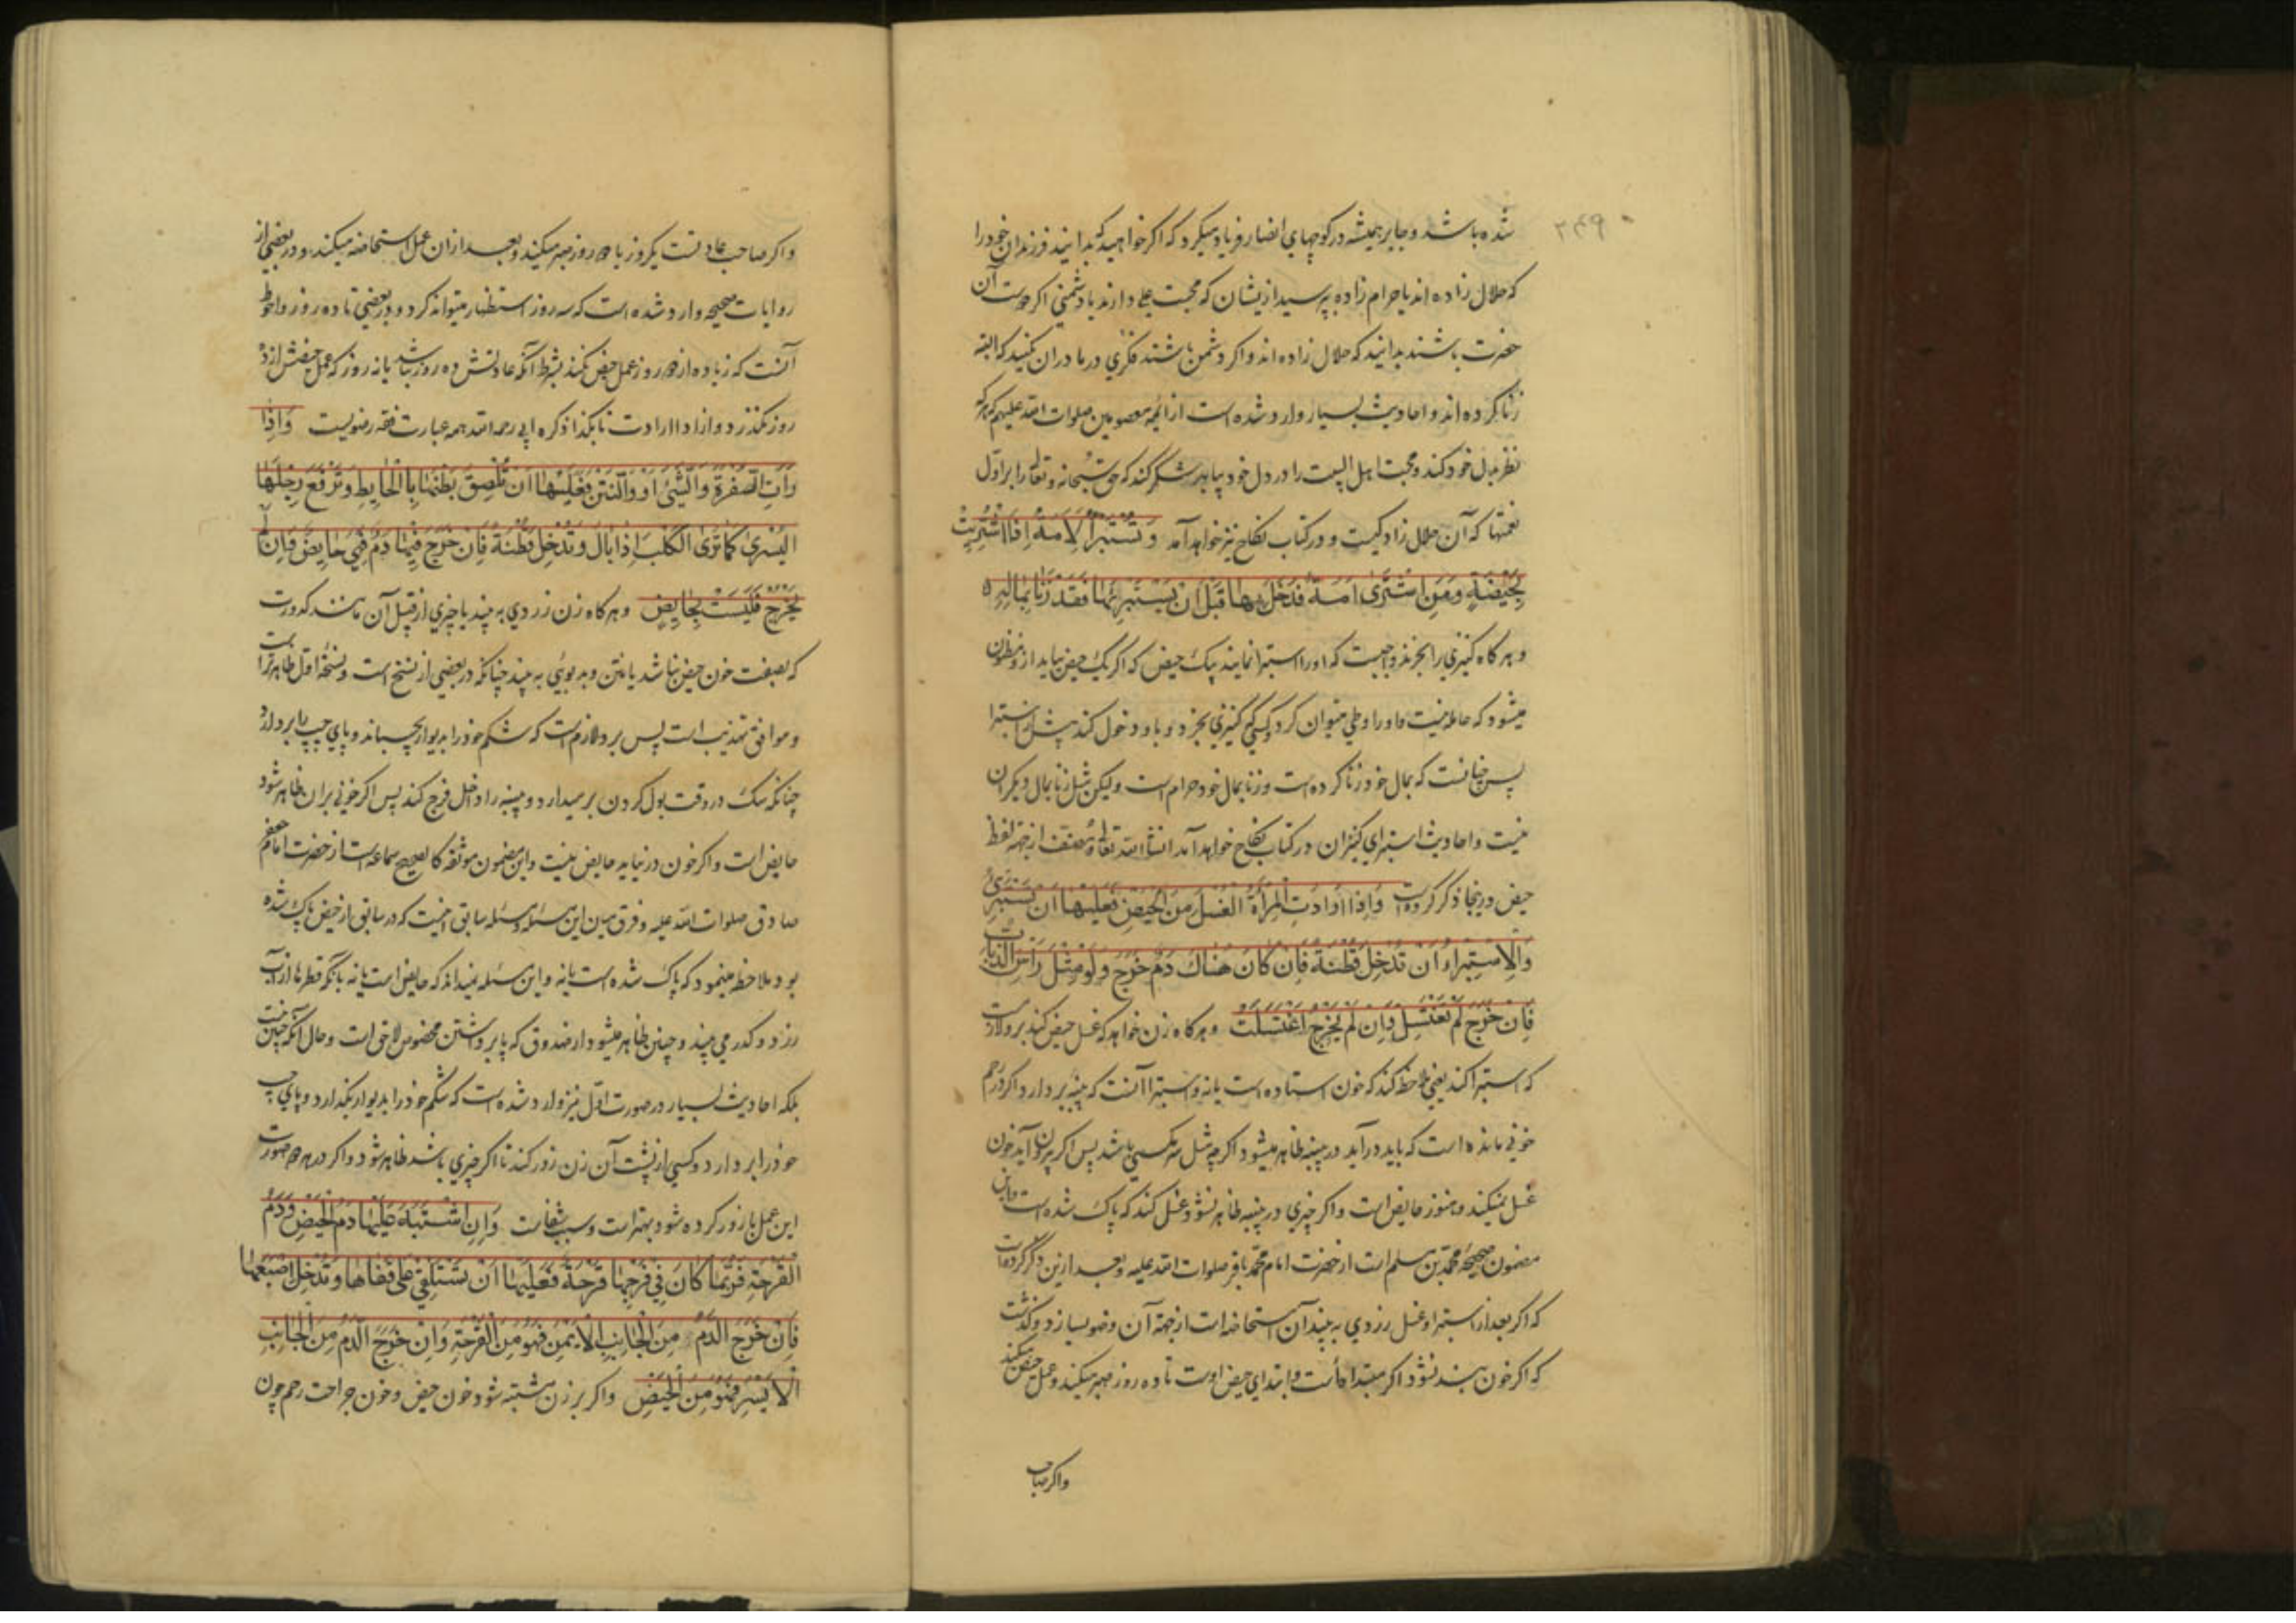 ۲۴۹
شده باشد و جابر همیشه در کوچهای انصار فریاد میکرد که اکر خواهید که بدانید فرزندان خود را
که حلال زاده اند یا حرام زاده بپرسید ازیشان که محبت علی دارند یا دشمنی اکر دوست آن
حضرت باشند بدانید که حلال زاده اند و اکر دشمن باشند فکری در مادران بکنید که البته
زنا کرده اند و احادیث بسیار وارد شده است از ائمه معصومین صلوات الله علیهم که هر که
نظر بدل خود کند و محبت اهل البیت را در دل خود بیابد شکر کند که حق سبحانه و تعالی را بر اول
نعمتها که آن حلال زادکیست و در کتاب نکاح نیز خواهد آمد وَتُسْتَبْرَأُ الْاَمَةُ اِذَا اشْتُرِیَتْ
بِحَیْضَةٍ وَمَنِ اشْتَرٰی اَمَةً فَدَخَلَ بِهَا قَبْلَ اَنْ یَسْتَبْرِئَهَا فَقَدْ زَنٰا بِمَالِهِ
و هر کاه کنیزی را بخرند واجبست که او را استبرا نمایند بیک حیض که اکر یک حیض بیاید از و مظنون
میشود که حامله نیست و او را وطی میتوان کرد و کسی که کنیزی بخرد و باو دخول کند پیش از استبرا
پس چنانست که بمال خود زنا کرده است و زنا بمال خود حرام است ولیکن مثل زنا بمال دیکران
نیست و احادیث استبرای کنیزان در کتاب نکاح خواهد آمد انشاالله تعالی و مصنف از جهة لفظ
حیض درینجا ذکر کرده است وَاِذَا اَرَادَتِ الْمَرْأَةُ الْغُسْلَ مِنَ الْحَیْضِ فَعَلَیْهَا اَنْ تَسْتَبْرِئَ
وَالْاِسْتِبْرَاءُ اَنْ تُدْخِلَ قُطْنَةً فَاِنْ کَانَ هُنَاکَ دَمٌ خَرَجَ وَلَوْ مِثْلَ رَأْسِ الذُّبَابِ
فَاِنْ خَرَجَ لَمْ تَغْتَسِلْ وَاِنْ لَمْ یَخْرُجْ اغْتَسَلَتْ و هر کاه زن خواهد که غسل حیض کند بر و لازمست
که استبرا کند یعنی ملاحظه کند که خون استاده است یا نه و استبرا آنست که پنبه بردارد اکر در رحم
خونی مانده است که باید درآید در پنبه ظاهر میشود اکر چه مثل سر مکسی باشد پس اکر بیرون آید خون
غسل نمیکند و هنوز حایض است و اکر چیزی در پنبه ظاهر نشود غسل کند که پاک شده است و این
مضمون صحیحه محمد بن مسلم است از حضرت امام محمد باقر صلوات الله علیه و بعد ازین ذکر کرده است
که اکر بعد از استبرا و غسل زردی به بیند آن استحاضه است از جهة آن وضو بسازد و کذشت
که اکر خون بند نشود اکر مبتدأه است و ابتدای حیض اوست تا ده روز صبر میکند و عمل حیض میکند
واکر صاحب
واکر صاحب عادتست یکروز یا دو روز صبر میکند و بعد از ان عمل استحاضه میکند و در بعضی از
روایات صحیحه وارد شده است که سه روز استظهار میتواند کرد و در بعضی تا ده روز و احوط
آنست که زیاده از دو روز عمل حیض نکند بشرط آنکه عادتش ده روز نباشد یا نه روز که عمل حیضش از ده
روز نکذرد و از اذا ارادت تا بکذا ذکره ابی رحمه الله همه عبارت فقه رضویست وَاِذَا
رَأَتِ الصُّفْرَةَ وَالشَّیْئَ اَوْ وَالنَّتْنَ فَعَلَیْهَا اَنْ تُلْصِقَ بَطْنَهَا بِالْحَایِطِ وَتَرْفَعَ رِجْلَهَا
الْیُسْرٰی کَمَا تَرَی الْکَلْبَ اِذَا بَالَ وَتُدْخِلَ قُطْنَةً فَاِنْ خَرَجَ فِیهَا دَمٌ فَهِیَ حَایِضٌ وَاِنْ لَمْ
یَخْرُجْ فَلَیْسَتْ بِحَایِضٍ و هر کاه زن زردی به بیند یا چیزی از قبل آن مانند کدورت
که بصفت خون حیض نباشد یا نتن و بد بوئی به بیند چنانکه در بعضی از نسخ است و نسخۀ اول ظاهرتر است
و موافق تهذیب است پس بر و لازم است که شکم خود را بدیوار بچسباند و پای چپ را بردارد
چنانکه سک در وقت بول کردن برمیدارد و پنبه را داخل فرج کند پس اکر خونی بران ظاهر شود
حایض است و اکر خون در نیاید حایض نیست و این مضمون موثقه کالصحیح سماعه است از حضرت امام جعفر
صادق صلوات الله علیه و فرق میان این مسئله و مسئله سابق اینست که در سابق از حیض پاک شده
بود ملاحظه مینمود که پاک شده است یا نه و این مسئله نمیداند که حایض است یا نه بآنکه قطرها از آب
زرد و کدر می بیند و چنین ظاهر میشود از صدوق که پا برداشتن مخصوص لاحق است و حال آنکه چنین نیست
بلکه احادیث بسیار در صورت اول نیز وارد شده است که شکم خود را بدیوار بکذارد و پای چپ
خود را بردارد و کسی از پشت آن زن زور کند تا اکر چیزی باشد ظاهر شود و اکر در هر دو صورت
این عمل با زور کرده شود بهتر است و سبب شفاست وَاِنِ اشْتَبَهَ عَلَیْهَا دَمُ الْحَیْضِ وَدَمُ
الْقَرْحَةِ فَرُبَّمَا کَانَ فِی فَرْجِهَا قَرْحَةٌ فَعَلَیْهَا اَنْ تَسْتَلْقِیَ عَلٰی قَفَاهَا وَتُدْخِلَ اِصْبَعَهَا
فَاِنْ خَرَجَ الدَّمُ مِنَ الْجَانِبِ الْاَیْمَنِ فَهُوَ مِنَ الْقَرْحَةِ وَاِنْ خَرَجَ الدَّمُ مِنَ الْجَانِبِ
الْاَیْسَرِ فَهُوَ مِنَ الْحَیْضِ واکر بر زن مشتبه شود خون حیض و خون جراحت رحم چون